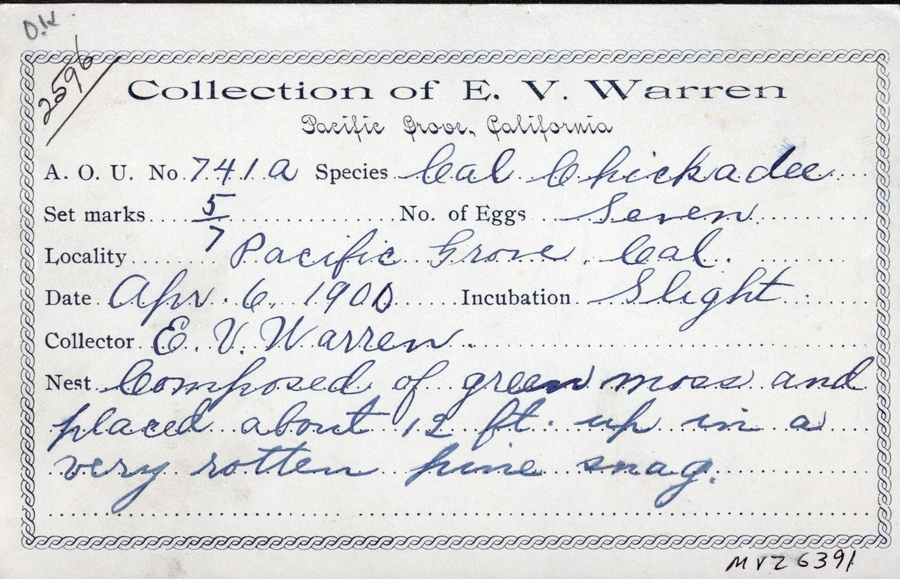 O.K.
2596
Collection of E. V. Warren
Pacific Grove, California
A. O. U. No. 741.a Species Cal Chickadee
Set marks 5/7 No. of Eggs Seven
Locality Pacific Grove. Cal.
Date Apr. 6, 1900 Incubation Slight
Collector E. V. Warren.
Nest Composed of green moss and
placed about 12 ft. up in a
very rotten pine snag.
MVZ 6391